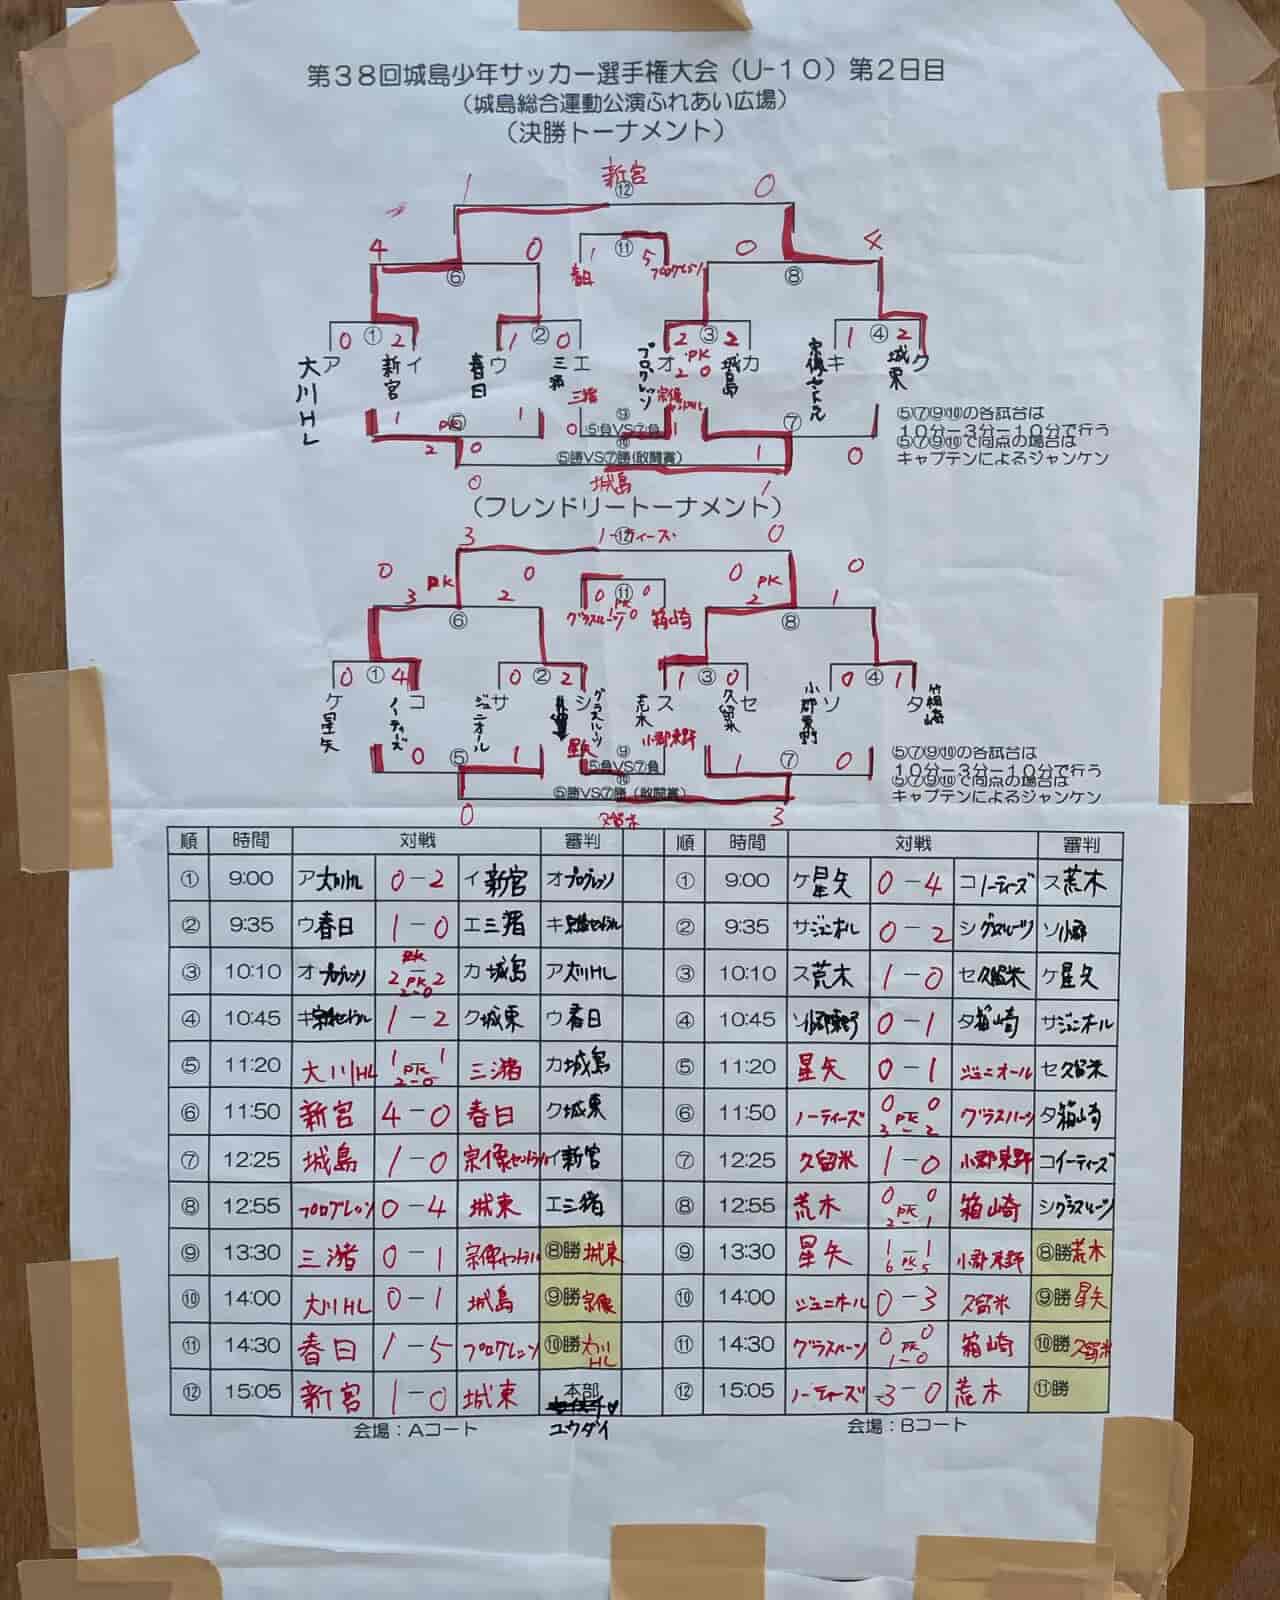 第38回城島少年サッカー選手権大会（U-10）第2日目
（城島総合運動公演ふれあい広場）
（決勝トーナメント）
新宮
⑫
1 0
4 0 ⑪ 0 4
1 5
⑥ 春日 プログレッソ ⑧
0 ① 2 1 ② 0 2 ③ 2 1 ④ 2
PK
2 0
大川HL ア 新宮 イ 春日 ウ 三潴 エ プログレッソ オ 城島 カ 宗像セントラル キ 城東 ク
三潴 宗像セントラル
1 ⑤ 1 0 ⑨ 1 ⑦
⑤負VS⑦負
PK
2 0 ⑩ 1 0
⑤勝VS⑦勝(敢闘賞)
0 城島 1
⑤⑦⑨⑩の各試合は
10分-3分-10分で行う
⑤⑦⑨⑩で同点の場合は
キャプテンによるジャンケン
（フレンドリートーナメント）
3 ⑫ ノーティーズ 0
0 PK 0 0 PK 0
3 2 2 1
0 ⑪ 0
PK
1-0
⑥ グラスルーツ 箱崎 ⑧
0 ① 4 0 ② 2 1 ③ 0 0 ④ 1
ケ 星矢 コ ノーティーズ サ ジュニオール シ グラスルーツ ス 荒木 セ 久留米 ソ 小郡東野 タ 箱崎
星矢 ⑨ 小郡東野
0 ⑤ 1 ⑤負VS⑦負 1 ⑦ 0
⑩
⑤勝VS⑦勝（敢闘賞）
0 久留米 3
⑤⑦⑨⑩の各試合は
10分-3分-10分で行う
⑤⑦⑨⑩で同点の場合は
キャプテンによるジャンケン
順 時間 対戦 審判 順 時間 対戦 審判
① 9:00 ア大川HL 0-2 イ新宮 オプログレッソ ① 9:00 ケ星矢 0-4 コノーティーズ ス荒木
② 9:35 ウ春日 1-0 エ三潴 キ宗像セントラル ② 9:35 サジュニオール 0-2 シグラスルーツ ソ小郡
③ 10:10 オプログレッソ 2-2 PK 2-0 カ城島 ア大川HL ③ 10:10 ス荒木 1-0 セ久留米 ケ星矢
④ 10:45 キ宗像セントラル 1-2 ク城東 ウ春日 ④ 10:45 ソ小郡東野 0-1 タ箱崎 サジュニオール
⑤ 11:20 大川HL 1 1 PK 2-0 三潴 カ城島 ⑤ 11:20 星矢 0-1 ジュニオール セ久留米
⑥ 11:50 新宮 4-0 春日 ク城東 ⑥ 11:50 ノーティーズ 0 0 PK 3-2 グラスルーツ タ箱崎
⑦ 12:25 城島 1-0 宗像セントラル イ新宮 ⑦ 12:25 久留米 1-0 小郡東野 コノーティーズ
⑧ 12:55 プログレッソ 0-4 城東 エ三潴 ⑧ 12:55 荒木 0 0 PK 2-1 箱崎 シグラスルーツ
⑨ 13:30 三潴 0-1 宗像セントラル ⑧勝城東 ⑨ 13:30 星矢 1-1 PK 6-5 小郡東野 ⑧勝荒木
⑩ 14:00 大川HL 0-1 城島 ⑨勝宗像 ⑩ 14:00 ジュニオール 0-3 久留米 ⑨勝星矢
⑪ 14:30 春日 1-5 プログレッソ ⑩勝大川HL ⑪ 14:30 グラスルーツ 0 0 PK 1-0 箱崎 ⑩勝久留米
⑫ 15:05 新宮 1-0 城東 本部 ⑫ 15:05 ノーティーズ 3-0 荒木 ⑪勝
ユウダイ
会場：Aコート 会場：Bコート